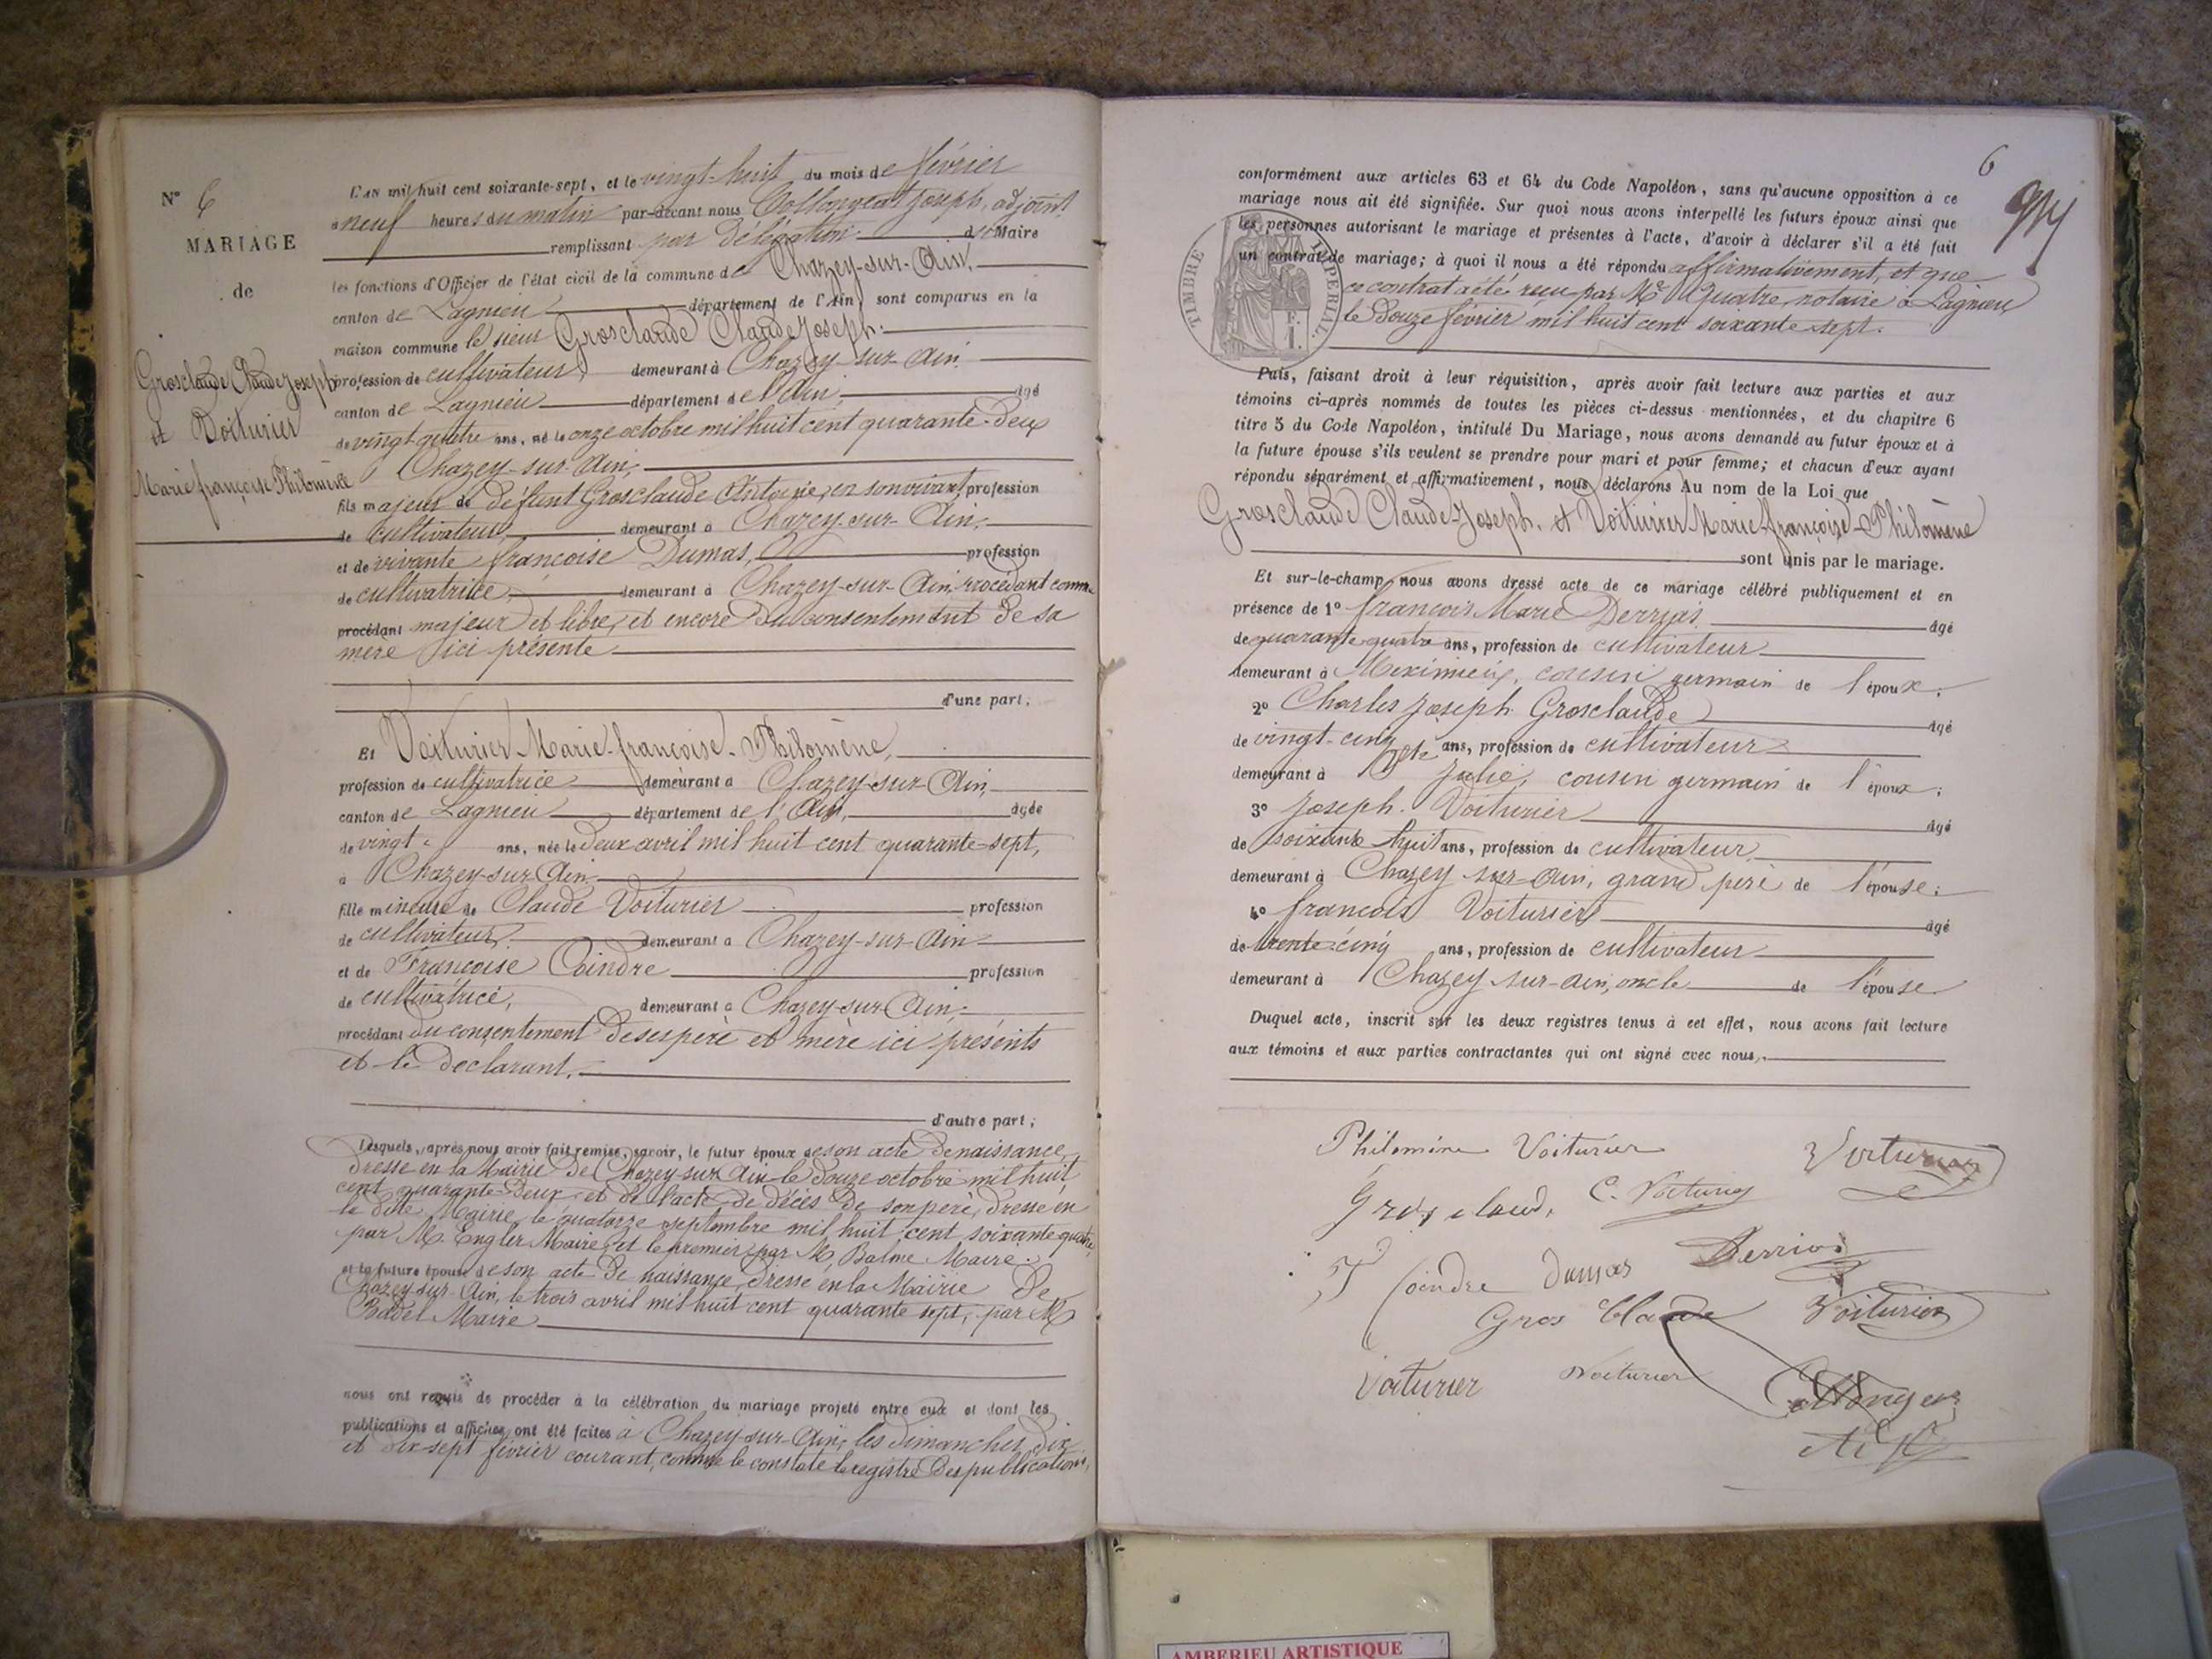 N° 6
MARIAGE
de
Grosclaude Claude Joseph
et Voiturier
Marie françoise Philomène
L'AN mil huit cent soixante-sept, et le vingt-huit du mois de février
à neuf heures du matin par-devant nous Collongeat Joseph, adjoint
remplissant par délégation du Maire
les fonctions d'Officier de l'état civil de la commune de Chazey-sur-Ain,
canton de Lagnieu département de l'Ain, sont comparus en la
maison commune le sieur Grosclaude Claude Joseph
profession de cultivateur, demeurant à Chazey-sur-Ain
canton de Lagnieu département de l'Ain, âgé
de vingt quatre ans, né le onze octobre mil huit cent quarante-deux
Chazey-sur-Ain,
fils majeur de défunt Grosclaude Antoine, en son vivant, profession
de cultivateur, demeurant à Chazey-sur-Ain,
et de vivante françoise Dumas, profession
de cultivatrice, demeurant à Chazey-sur-Ain, procédant comme
procédant majeur et libre, et encore du consentement de sa
mère ici présente
d'une part;
Et Voiturier Marie-françoise-Philomène,
profession de cultivatrice demeurant à Chazey-sur-Ain,
canton de Lagnieu département de l'Ain, âgée
de vingt ans, née le deux avril mil huit cent quarante-sept,
à Chazey-sur-Ain,
fille mineure de Claude Voiturier profession
de cultivateur, demeurant à Chazey-sur-Ain
et de Françoise Coindre profession
de cultivatrice, demeurant à Chazey-sur-Ain,
procédant du consentement de ses père et mère ici présents
et le déclarant.
d'autre part;
Lesquels, après nous avoir fait remise, savoir, le futur époux de son acte de naissance,
dressé en la Mairie de Chazey-sur-Ain le douze octobre mil huit
cent quarante-deux, et de l'acte de décès de son père, dressé en
la dite Mairie, le quatorze septembre mil huit cent soixante quatre,
par M. Engler Maire, et le premier par M. Balme Maire.
et la future épouse de son acte de naissance, dressé en la Mairie de
Chazey-sur-Ain, le trois avril mil huit cent quarante sept, par M
Badel Maire
nous ont requis de procéder à la célébration du mariage projeté entre eux et dont les
publications et affiches ont été faites à Chazey-sur-Ain, les dimanches dix
et dix-sept février courant, comme le constate le registre des publications,
6
conformément aux articles 63 et 64 du Code Napoléon, sans qu'aucune opposition à ce
mariage nous ait été signifiée. Sur quoi nous avons interpellé les futurs époux ainsi que
les personnes autorisant le mariage et présentes à l'acte, d'avoir à déclarer s'il a été fait
un contrat de mariage; à quoi il nous a été répondu affirmativement, et que
ce contrat a été reçu par Me Quatre, notaire à Lagnieu
le douze février mil huit cent soixante sept.
TIMBRE IMPERIAL
F.
1.
Puis, faisant droit à leur réquisition, après avoir fait lecture aux parties et aux
témoins ci-après nommés de toutes les pièces ci-dessus mentionnées, et du chapitre 6
titre 5 du Code Napoléon, intitulé Du Mariage, nous avons demandé au futur époux et à
la future épouse s'ils veulent se prendre pour mari et pour femme; et chacun d'eux ayant
répondu séparément et affirmativement, nous déclarons Au nom de la Loi que
Grosclaude Claude-Joseph. et Voiturier Marie-françoise-Philomène
sont unis par le mariage.
Et sur-le-champ nous avons dressé acte de ce mariage célébré publiquement et en
présence de 1° françois Marie Derrias âgé
de quarante quatre ans, profession de cultivateur
demeurant à Meximieux, cousin germain de l'époux;
2° Charles Joseph Grosclaude âgé
de vingt-cinq ans, profession de cultivateur
demeurant à Ste Julie, cousin germain de l'époux;
3° Joseph Voiturier âgé
de soixante huit ans, profession de cultivateur
demeurant à Chazey sur-Ain, grand père de l'épouse;
4° françois Voiturier âgé
de trente-cinq ans, profession de cultivateur
demeurant à Chazey-sur-Ain, oncle de l'épouse
Duquel acte, inscrit sur les deux registres tenus à cet effet, nous avons fait lecture
aux témoins et aux parties contractantes qui ont signé avec nous,
Philomène Voiturier Voiturier
Grosclaud, C. Voiturier
Coindre Dumas Derrias
Gros Claude Voiturier
Voiturier Voiturier Collongeat
AMBERIEU ARTISTIQUE